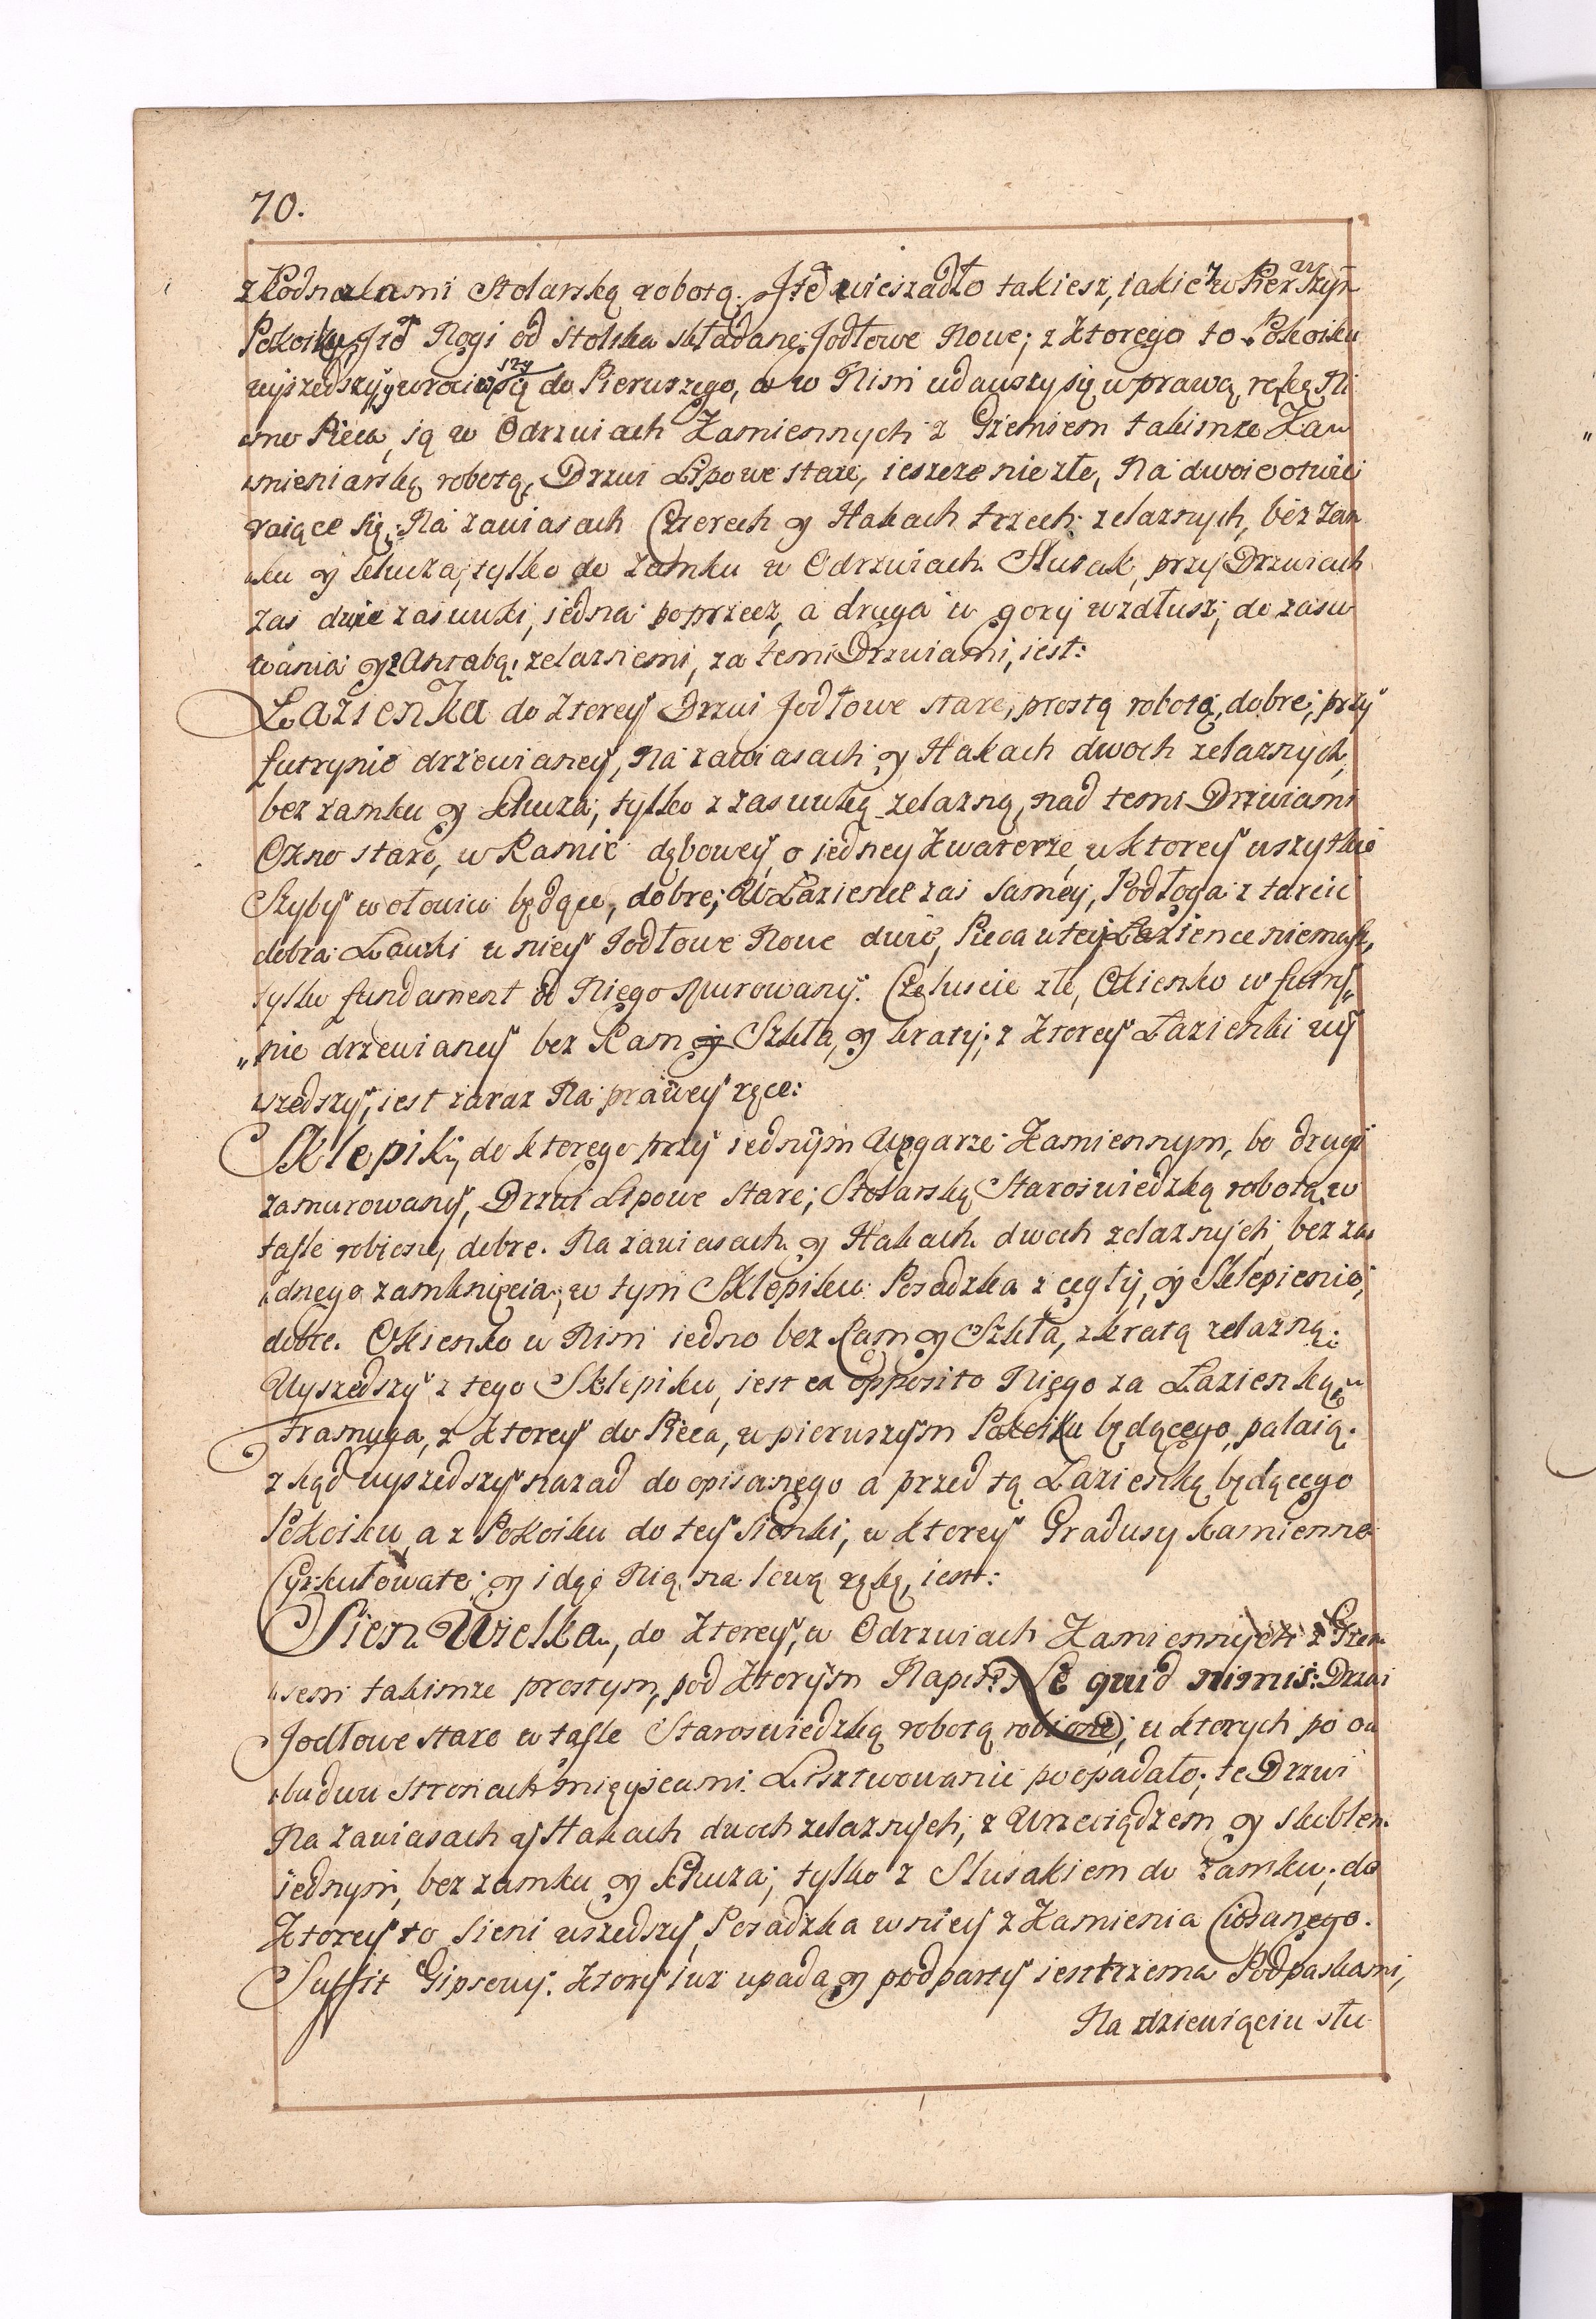 70.
z Podnożkami Stolarską robotą. Jtem wieszadło takiesz, iakie w Pierwszym
Pokoiku, Jtem Nogi od Stolika składane, Jodłowe Nowe; z Ktorego to Pokoiku
wyszedszy y wrociwszy się do Pierwszego, a w Nim udawszy się w prawą rękę Mi
„mo Pieca, są w Odrzwiach Kamiennych z Gzemsem takimze Ka„
„mieniarską robotą, Drzwi Lipowe stare, ieszcze niezłe, Na dwoie otwie
raiące się; Na zawiasach Czterech y Hakach trzech zelaznych, bez Zam
„ku y klucza, tylko do Zamku w Odrzwiach Slusak, przy Drzwiach
zas dwie zasuwki, iedna poprzecz, a druga w gorę wzdłusz, do zasu
wania y z Antabą zelaznemi, za temi Drzwiami, iest:
Łazienka do Ktorey Drzwi Jodłowe stare, prostą robotą, dobre, przy
futrynie drzewianey, Na zawiasach y Hakach dwoch zelaznych,
bez zamku y klucza, tylko z zasuwką zelazną, nad temi Drzwiami
Okno stare, w Ramie dębowey, o iedney Kwaterze, w ktorey wszytkie
Szyby w ołowiu będące, dobre; W Łazience zas samey, Podłoga z tarcic
dobra Ławki w niey Jodłowe Nowe dwie, Pieca w tey Łazience niemasz,
tylko fundament od Niego Murowany. Czeluscie złe, Okienko w futry„
„nie drzewianey bez Ram y Szkła, y kraty; z Ktorey Łazienki wy
szedszy, iest zaraz Na prawey ręce:
Sklepik, do ktorego przy iednym Węgarze Kamiennym, bo drugi
zamurowany, Drzwi Lipowe Stare; Stolarską Staroswiedzką robotą w
tafle robione, dobre. Na zawiasach y Hakach dwoch zelaznych, bez ża
„dnego zamknięcia; w tym Sklepiku Posadzka z cegły, y Sklepienie,
dobre. Okienko w Nim iedno bez Ram y Szkła, z kratą zelazną.
Wyszedszy z tego Sklepiku, iest ex opposito Niego za Łazienką
Framuga, z Ktorey do Pieca, w pierwszym Pokoiku będącego, palaią.
z kąd wyszedszy nazad do opisanego a przed tą Łazienką będącego
Pokoiku, a z Pokoiku do tey sionki, w Ktorey Gradusy kamienne
Cyrkułowate y idąc Nią na lewą rękę, iest:
Sien Wielka, do Ktorey, w Odrzwiach Kamiennych z Gzem
„sem takimze prostym, pod Ktorym Napis: Ne quid nimis: Drzwi
Jodłowe stare w tafle Staroswiedzką robotą robione, w ktorych po o„
„budwu stronach mieyscami Lisztwowanie poopadało; te Drzwi
Na zawiasach y Hakach dwoch zelaznych, z Wrzeciądzem y skoblem
iednym, bez zamku y klucza; tylko z Slusakiem do zamku; do
Ktorey to Sieni wszedszy, Posadzka w niey z Kamienia Ciosanego.
Suffit Gipsowy. Ktory iuz upada y podparty iest trzema Podpaskami,
Na dziewięciu słu